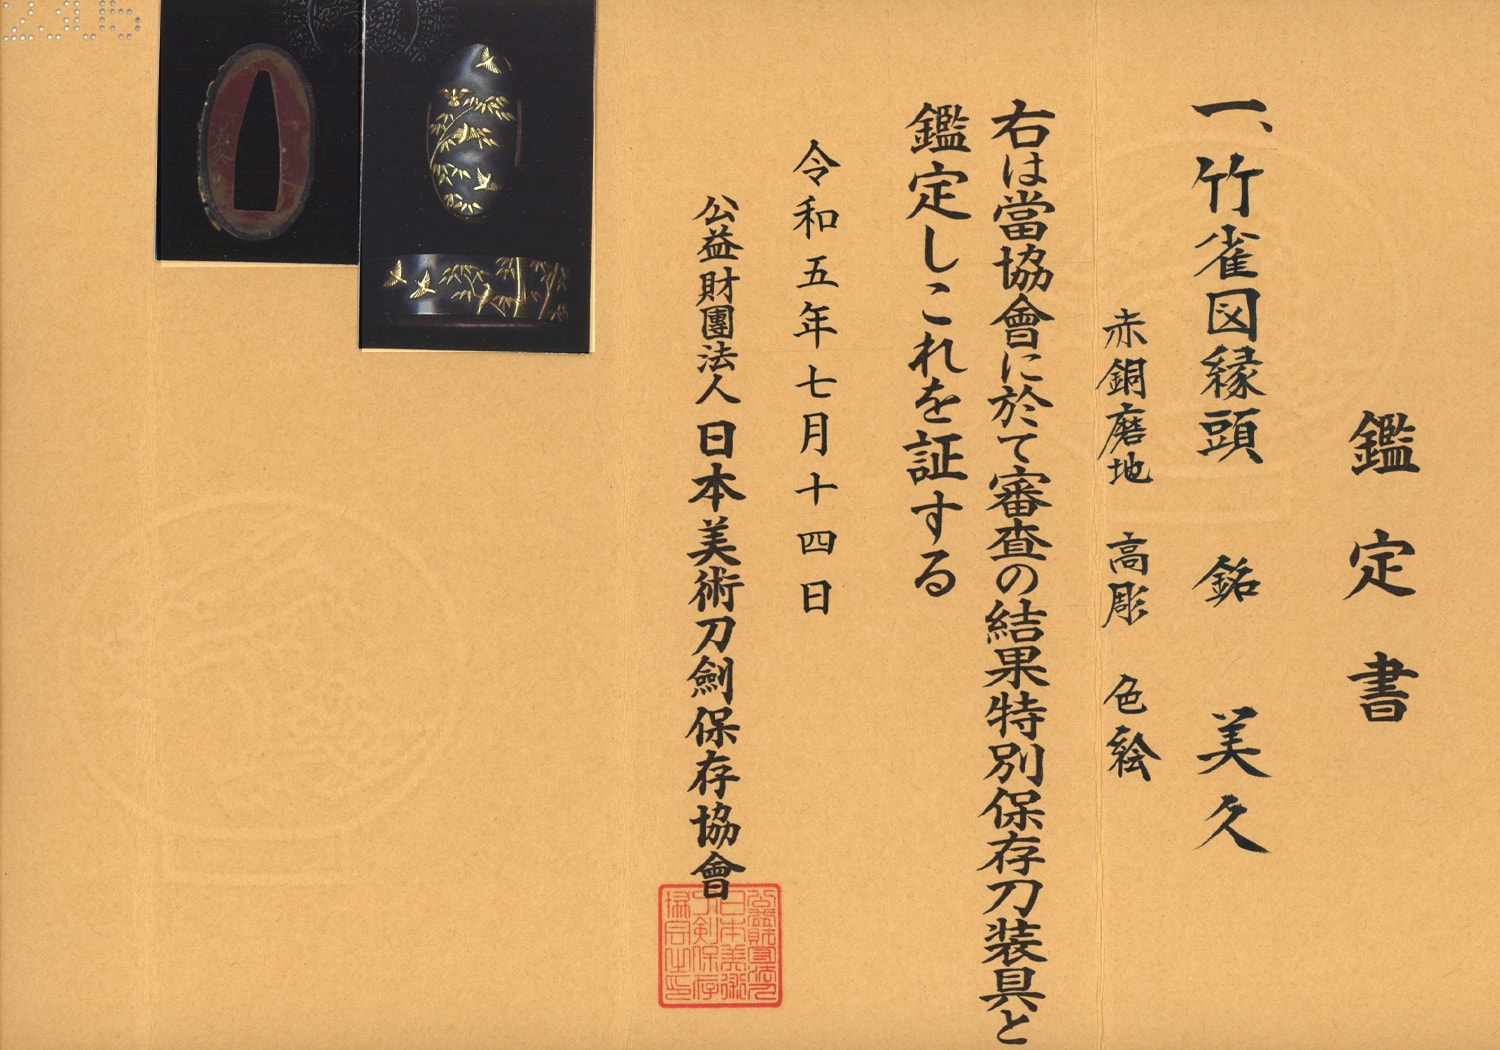 鑑定書
一、竹雀図縁頭 銘 美久
赤銅磨地 高彫 色絵
右は當協會に於て審査の結果特別保存刀装具と
鑑定しこれを証する
令和五年七月十四日
公益財團法人日本美術刀劍保存協會